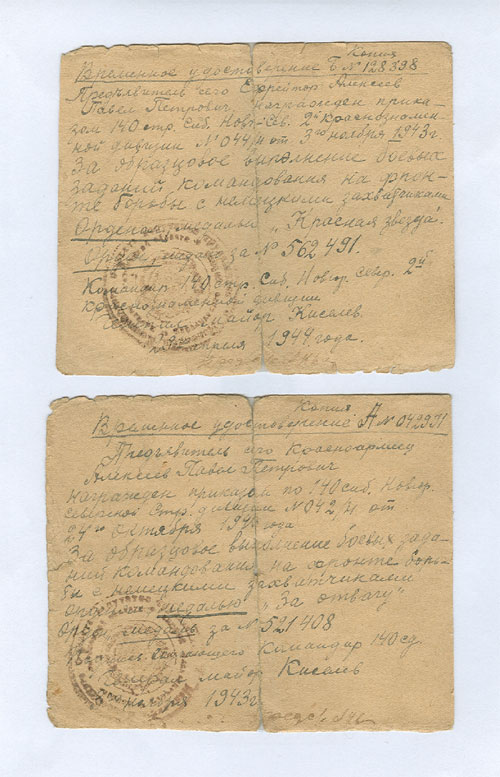 Копия
Временное удостоверение Б № 128398
Предъявитель сего Ефрейтор Алексеев
Павел Петрович, награжден прика-
зом 140 стр. Сиб. Новг-Сев. 2й Краснознамен-
ной дивизии № 044/н от 3го ноября 1943г
"За образцовое выполнение боевых
заданий командования на фрон-
те борьбы с немецкими захватчиками
Орденом медалью "Красная звезда.
Орден, медаль за № 562491.
Командир 140 стр. Сиб. Новгор. Север. 2й
краснознаменной дивизии
майор Киселев.
апреля 1944 года.
Копия
Временное удостоверение А № 042971
Предъявитель сего Красноармеец
Алексеев Павел Петрович
награжден приказом по 140 сиб. Новгор.
северной Стр. дивизии № 042/н от
24го октября 1943 года
"За образцовое выполнение боевых зада-
ний командования на фронте борь-
бы с немецкими захватчиками
медалью "За отвагу"
Орден, медаль за № 521408
командир 140 сд.
Генерал майор Киселев
1943г